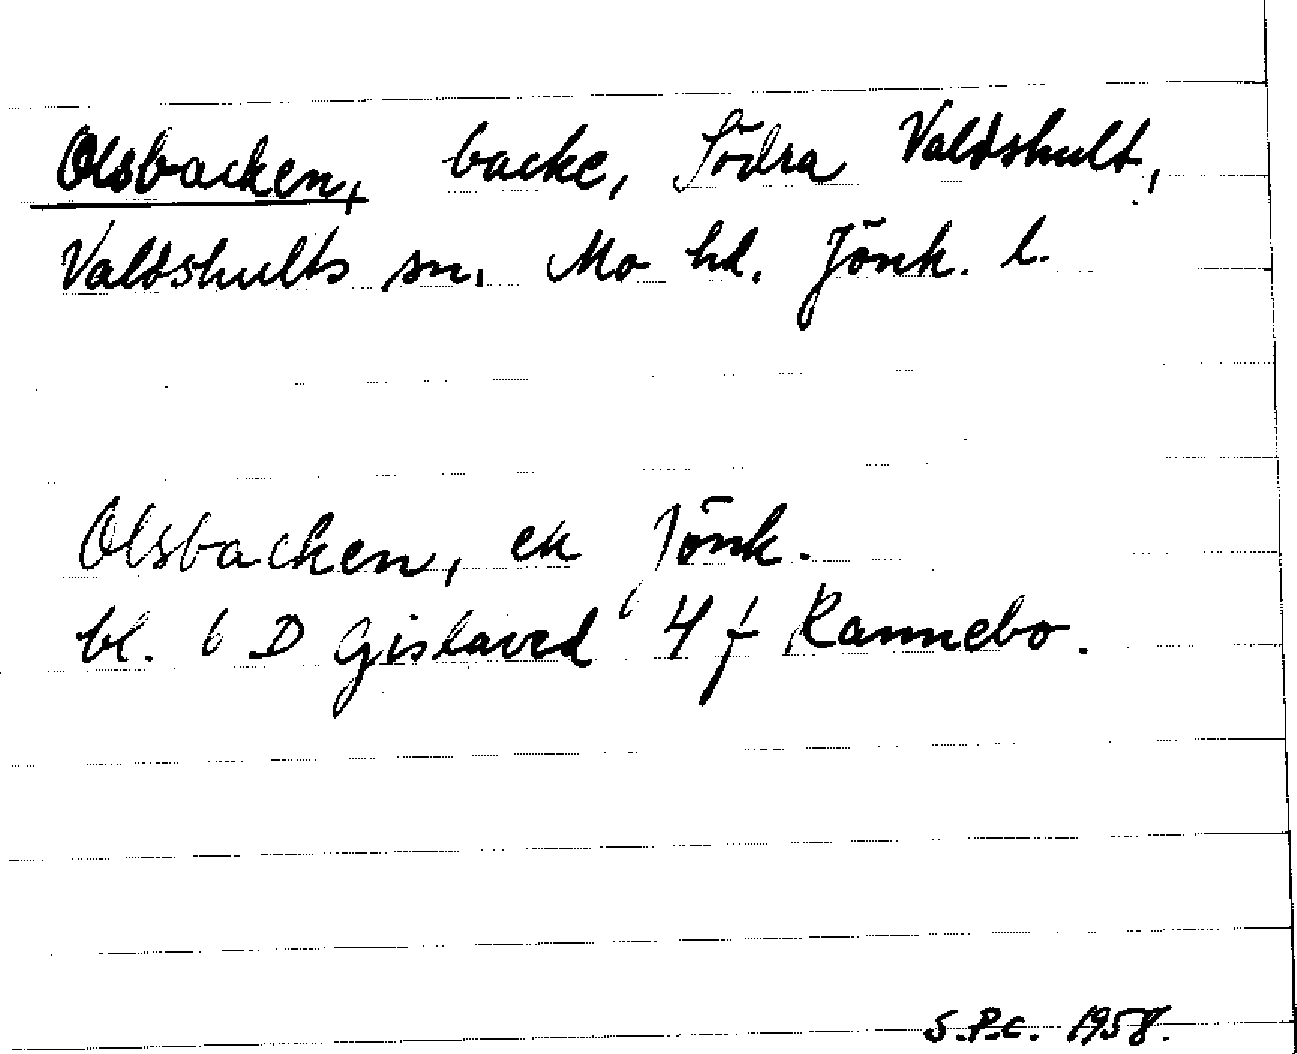 Olsbacken, backe, Södra Valdshult,
Valdshults sn. Mo hd. Jönk. l.
Olsbacken, ek Jönk.
bl. 6 D Gislaved 4 f Rannebo.
S.P.C. 1958.